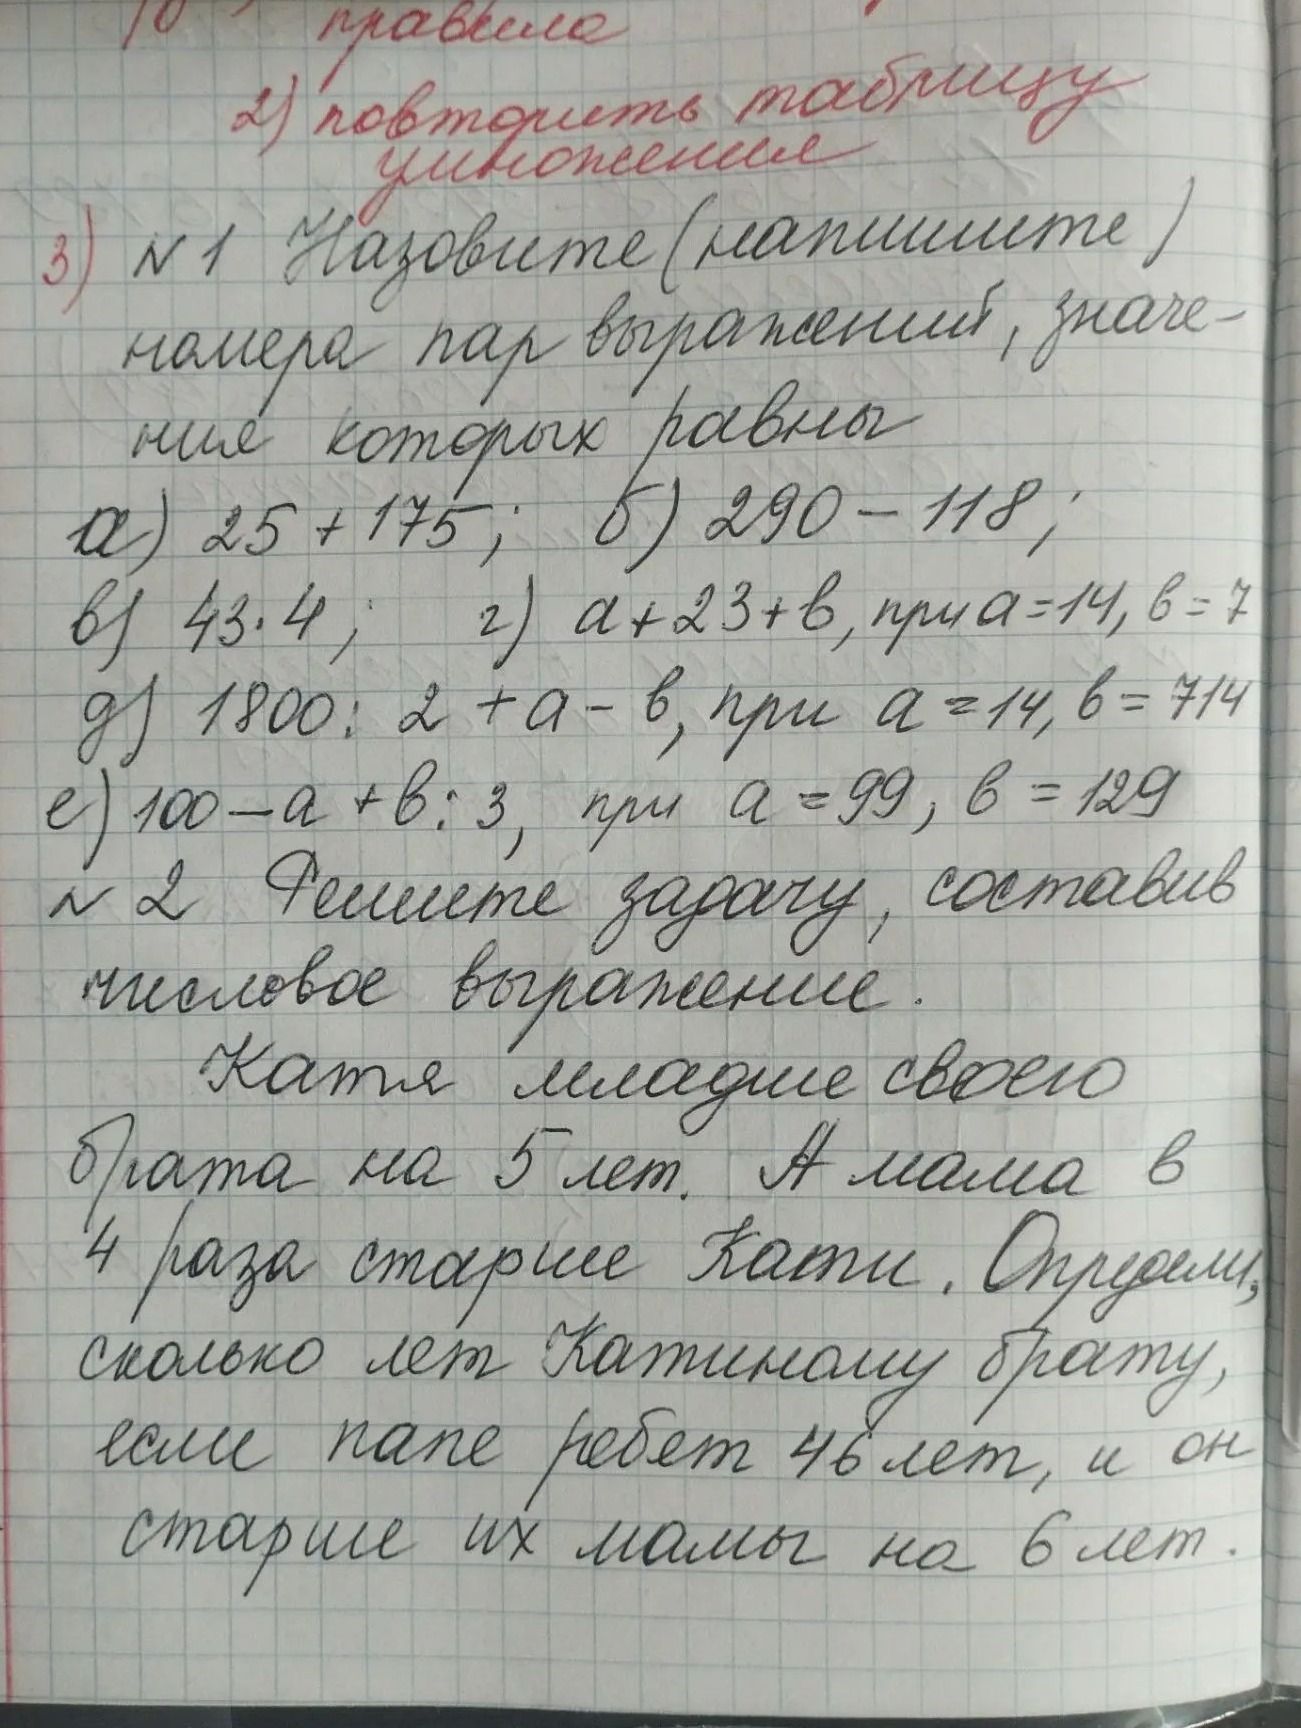 правила
2) повторить таблицу
умножения
3) №1 Назовите (напишите)
номера пар выражений, значе-
ния которых равны
а) 25 + 175; б) 290 - 118;
в) 43·4; г) а+23+в, при а=14, в=7
д) 1800 : 2 + а - в, при а =14, в = 714
е) 100 - а + в : 3, при а = 99, в = 129
№2 Решите задачу, составив
числовое выражение.
Катя младше своего
брата на 5 лет. А мама в
4 раза старше Кати. Определи,
сколько лет Катиному брату,
если папе ребят 46 лет, и он
старше их мамы на 6 лет.